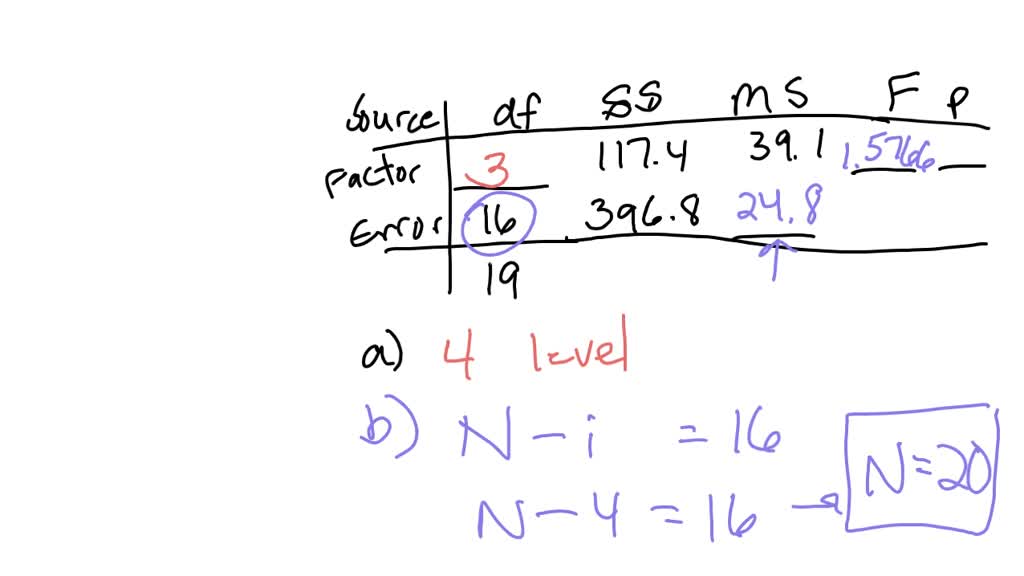 Source df SS MS F P
Factor 3 117.4 39.1 1.5766
Error 16 396.8 24.8
19
a) 4 level
b) N - i = 16
N - 4 = 16 → N = 20